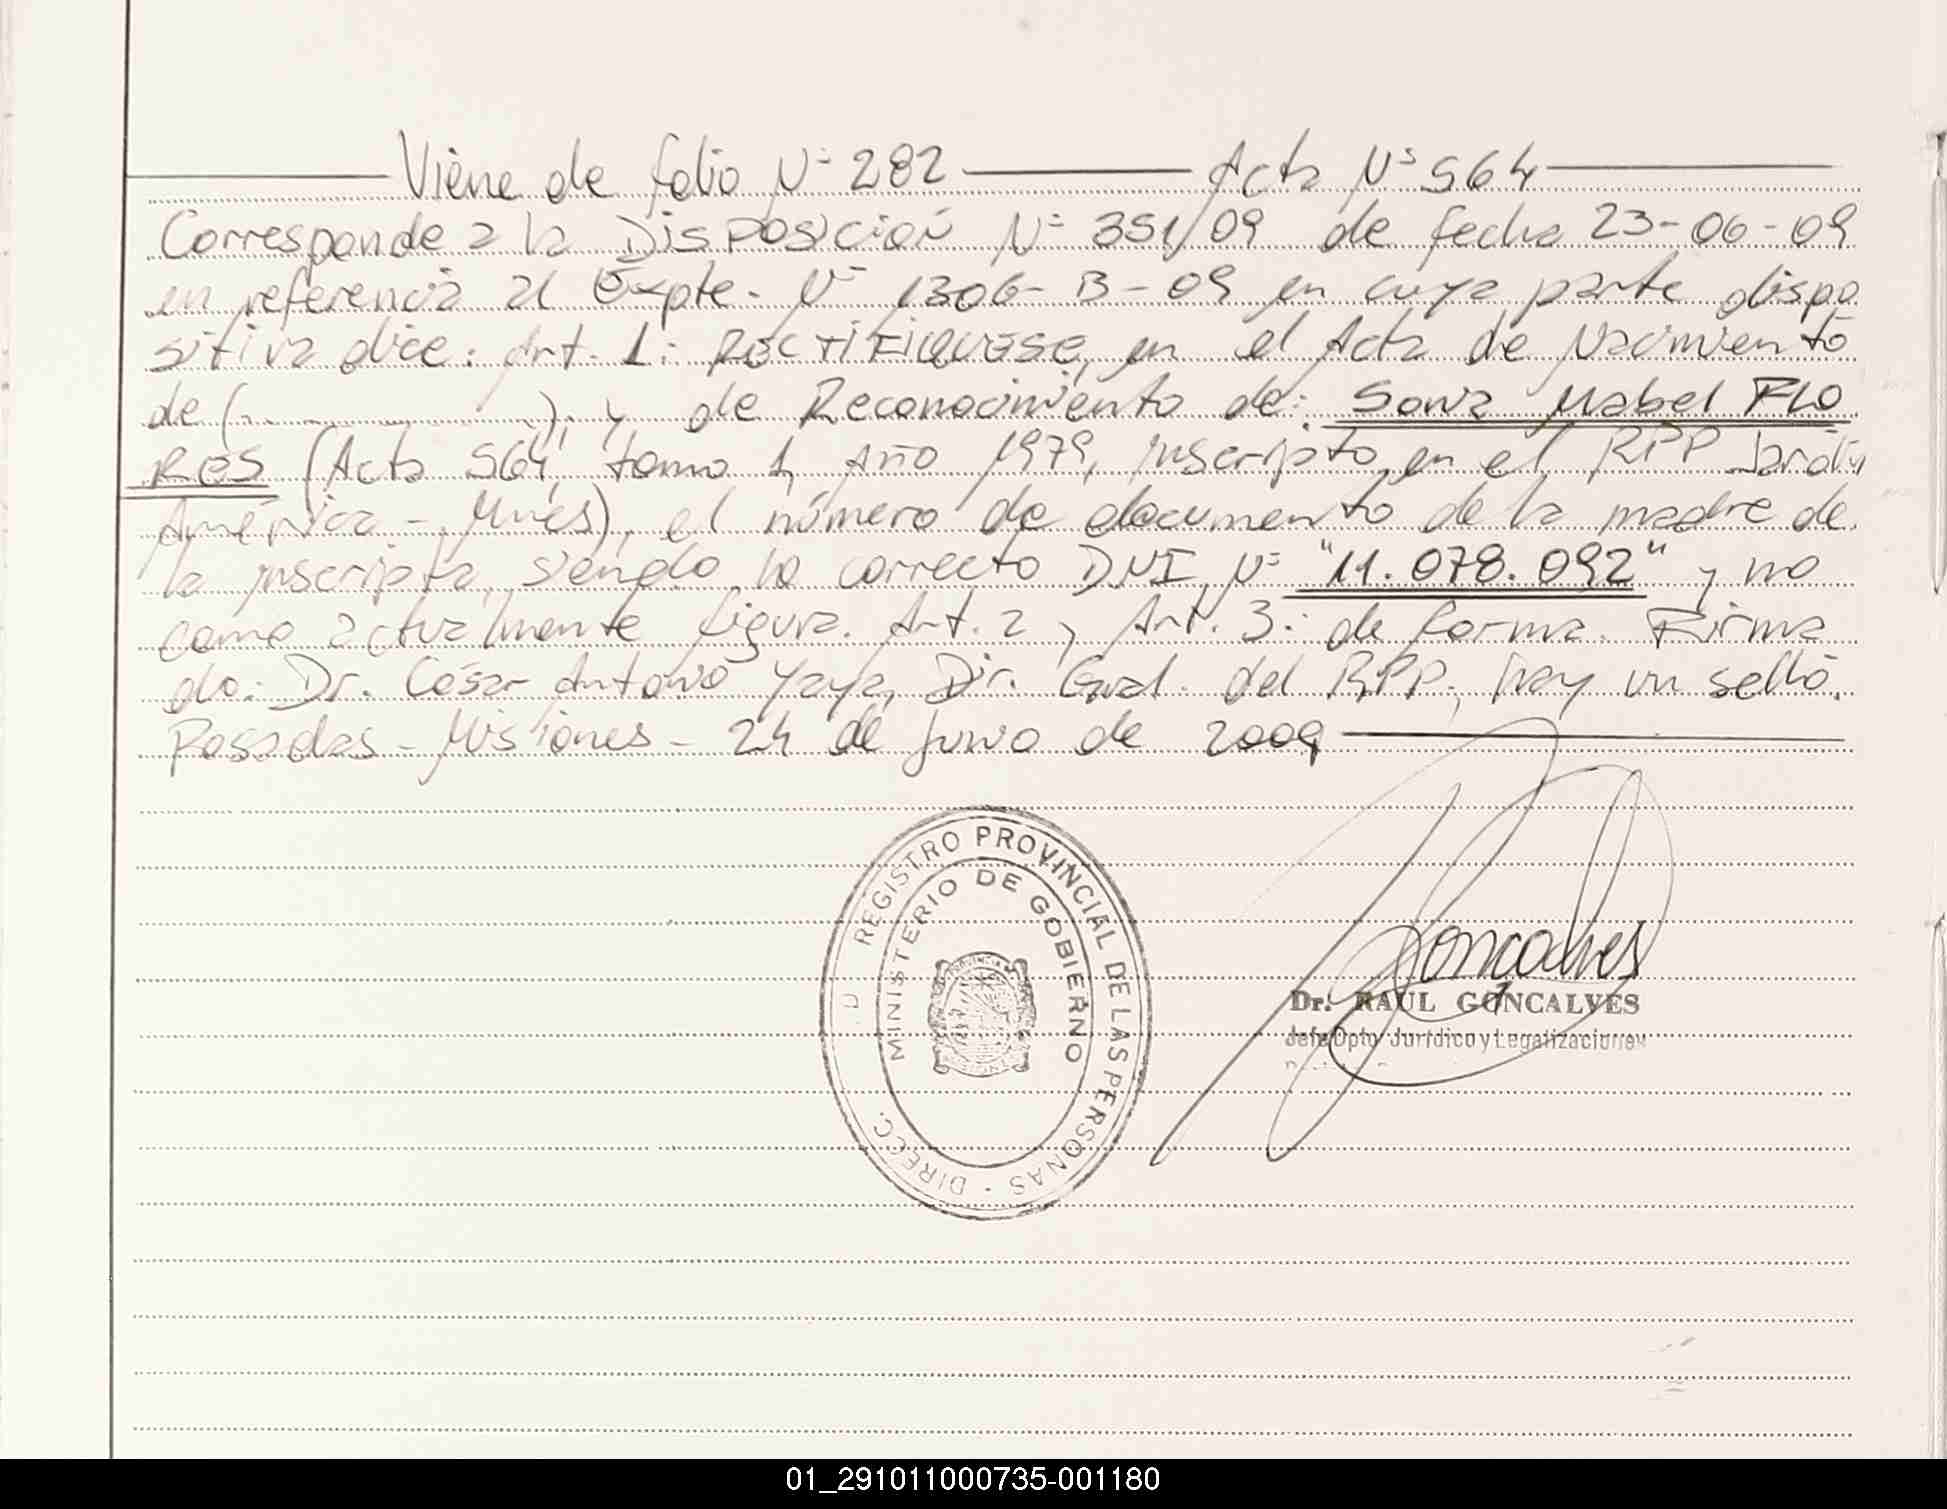 Viene de folio Nº 282 — Acta Nº 564 —
Corresponde a la Disposición Nº 351/09 de fecha 23-06-09
en referencia al Expte. Nº 1306-B-09 en cuya parte dispo
sitiva dice: Art. 1: RECTIFIQUESE, en el Acta de Nacimiento
de (..............), y de Reconocimiento de: Sonia Mabel FLO
RES (Acta 564, tomo 1, año 1979, inscripto en el RPP Jardín
América - Mnes), el número de documento de la madre de
la inscripta, siendo lo correcto DNI Nº "11.078.092" y no
como actualmente figura. Art. 2 y Art. 3: de forma. Firma
do: Dr. César Antonio Yaya, Dir. Gral. del RPP, hay un sello.
Posadas - Misiones - 24 de junio de 2009 —
REGISTRO PROVINCIAL DE LAS PERSONAS - DIRECC.
MINISTERIO DE GOBIERNO
Goncalves
Dr. RAUL GONCALVES
Jefe Dpto Jurídico y Legalizaciones
01_291011000735-001180